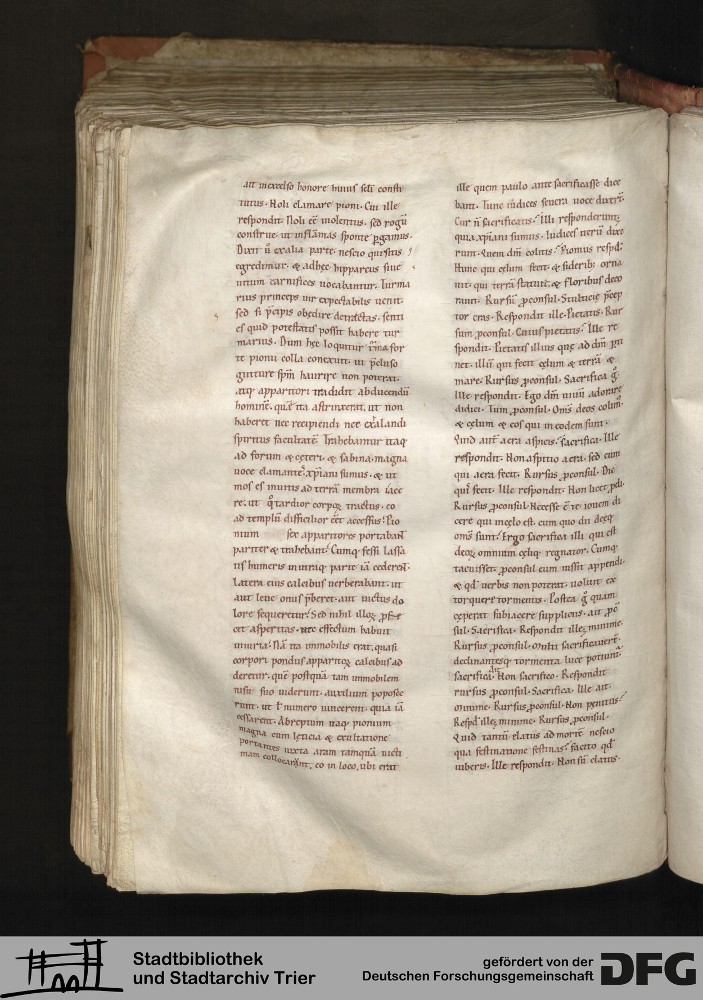 ait in excelso honore huius scl̄i consti
tutus. Noli clamare pioni. Cui ille
respondit. Noli eē uiolentus. sed rogū
construe. ut in flāmas sponte ꝑgamus.
Dixit ū ex alia parte nescio quis
egredimur. & adhęc hipparcus siue
carnifices uocabantur. Turma
rius princeps uir expectabilis uenit.
sed si p̄cipis obędire detrectas. senti
es quid potestatis possit habere tur
marius. Dum hęc loquitur for
te pionii colla conexuit. ut
gutture sp̄m haurire non poterat.
atq; apparitori tradidit abducendū
hominē. quē ita astrinxerat. ut non
haberet nec recipiendi nec exalandi
spiritus facultatē. Trahebantur itaq;
ad forum & cęteri. & sabina. magna
uoce clamantes. xp̄iani sumus. & ut
mos ęs inuitis ad terrā membra iace
re. ut q̊ tardior corpoꝝ tractus. eo
ad templū difficilior eēt accessus. Pio
nium sex apparitores portabant
pariter & trahebant. Cumq; fessi lassa
tis humeris in utraq; parte iā cederent.
latera eius calcibus uerberabant. ut
aut leue onus p̄beret. aut uictus do
lore sequeretur. Sed nihil illoꝝ ꝓfe
cit asperitas. nec effectum habuit
iniuria. Nā ita immobilis erat. quasi
corpori pondus apparitoꝝ calcibus ad
deretur. quē postquā tam immobilem
nisu suo uiderunt. auxilium poposce
runt. ut l numero uincerent. quia iā
cessarent. Abreptum itaq; pionium
magna cum lęticia & exultatione
portantes iuxta aram tamquā uicti
mam collocarunt. eo in loco. ubi erat
ille quem paulo ante sacrificasse dice
bant. Tunc iudices seuera uoce dixerī.
Cur n̄ sacrificatis? Illi responderunt.
quia xp̄iani sumus. Iudices uerū dixe
runt. Quem dm̄ colitis? Pionius respd̄.
Hunc qui cęlum fecit. & siderib; orna
uit. qui terrā statuit. & floribus deco
rauit. Rursū ꝓconsul.
tor eras. Respondit ille. Pietatis. Rur
sum ꝓconsul. Cuius pietatis? Ille re
spondit. Pietatis illius quę ad dm̄ ꝑti
net. illū qui fecit cęlum & terrā &
mare. Rursus ꝓconsul. Sacrifica g̊.
Ille respondit. Ego dm̄ uiuū adorare
didici. Tum ꝓconsul. Om̄s deos colim̄.
& cęlum & eos qui in eodem sunt.
Quid aut̄ aera aspicis? sacrifica. Ille
respondit. Non aspitio aera. sed eum
qui aera fecit. Rursus ꝓconsul. Dic
quis fecit. Ille respondit. Non licet ꝓdi.
Rursus ꝓconsul. Necesse ē te iouem di
cere qui in cęlo est. cum quo dii deęq;
om̄s sunt. Ergo sacrifica illi qui est
deoꝝ omnium cęliq; regnator. Cumq;
tacuisset. ꝓconsul eum iussit appendi.
& qd̄ uerbis non poterat. uoluit ex
torquere tormentis. Postea g̊ quam
cęperat subiacere suppliciis. ait ꝓcō
sul. Sacrifica. Respondit ille. minime.
Rursus ꝓconsul. Multi sacrificauerī.
declinantesq; tormenta luce potiunt̄.
sacrifica. Non sacrifico. Respondit
rursus ꝓconsul. Sacrifica. Ille ait.
minime. Rursus ꝓconsul. Non penitus?
Respd̄ ille. minime. Rursus ꝓconsul.
Quid tantū elatus ad mortē nescio
qua festinatione festinas? facito qd̄
iuberis. Ille respondit. Non sū elatus.
Stadtbibliothek
und Stadtarchiv Trier
gefördert von der
Deutschen Forschungsgemeinschaft
DFG